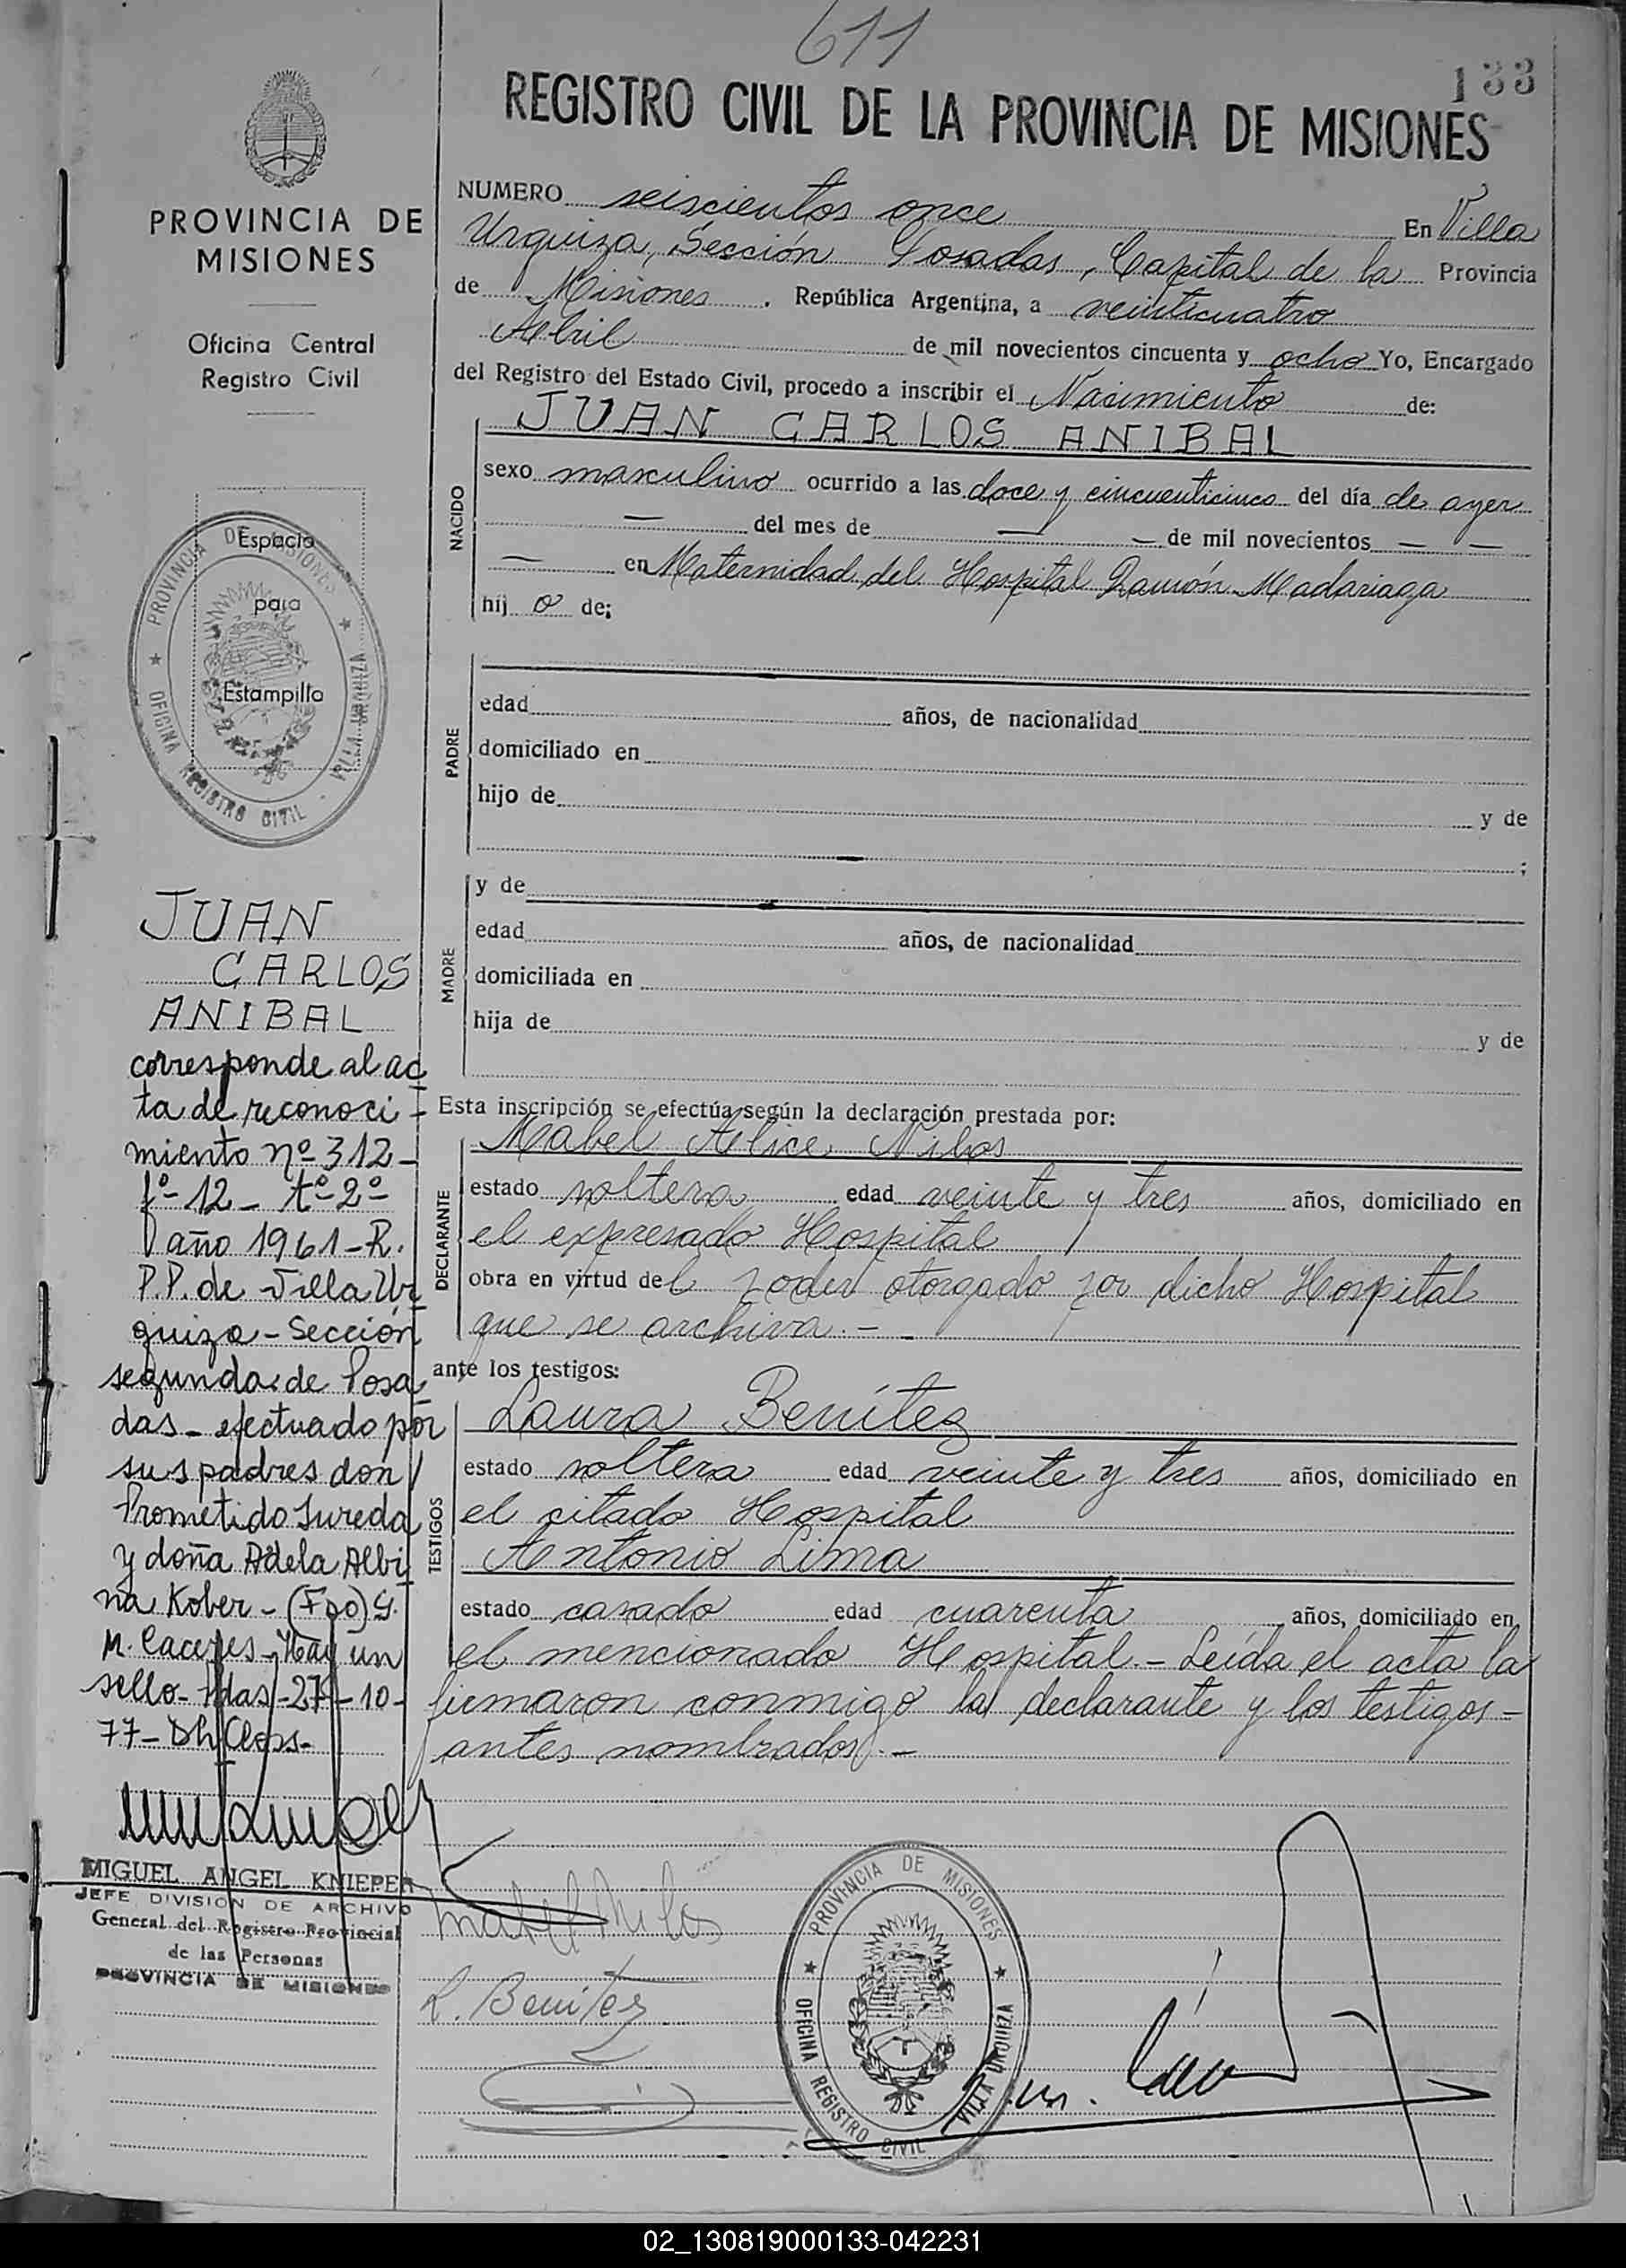 611
133
REGISTRO CIVIL DE LA PROVINCIA DE MISIONES
PROVINCIA DE
MISIONES
Oficina Central
Registro Civil
Espacio
para
Estampilla
PROVINCIA DE MISIONES
OFICINA REGISTRO CIVIL - VILLA URQUIZA
JUAN
CARLOS
ANIBAL
corresponde al ac
ta de reconoci -
miento nº 312 -
fº - 12 - tº - 2º -
año 1961 - R.
P.P. de Villa Ur
quiza - Sección
segunda de Posa
das - efectuado por
sus padres don
Prometido Sureda
y doña Adela Albi
na Kober - (Fdo) G.
M. Caceres - Hay un
sello - Pdas - 27 - 10 -
77 -
MIGUEL ANGEL KNIEPER
JEFE DIVISION DE ARCHIVO
General del Registro Provincial
de las Personas
PROVINCIA DE MISIONES
NUMERO seiscientos once En Villa
Urquiza, Sección Posadas, Capital de la Provincia
de Misiones. República Argentina, a veinticuatro
Abril de mil novecientos cincuenta y ocho Yo, Encargado
del Registro del Estado Civil, procedo a inscribir el Nacimiento de:
NACIDO
JUAN CARLOS ANIBAL
sexo masculino ocurrido a las doce y cincuenticinco del día de ayer
— del mes de — — de mil novecientos — —
— en Maternidad del Hospital Ramón Madariaga
hij o de;
PADRE
edad años, de nacionalidad
domiciliado en
hijo de y de
;
MADRE
y de
edad años, de nacionalidad
domiciliada en
hija de y de
Esta inscripción se efectúa según la declaración prestada por:
DECLARANTE
Mabel Alice Nilos
estado soltera edad veinte y tres años, domiciliado en
el expresado Hospital
obra en virtud del poder otorgado por dicho Hospital
que se archiva. -
ante los testigos:
TESTIGOS
Laura Benítez
estado soltera edad veinte y tres años, domiciliado en
el citado Hospital
Antonio Lima
estado casado edad cuarenta años, domiciliado en
el mencionado Hospital. - Leída el acta la
firmaron conmigo la declarante y los testigos -
antes nombrados. -
Mabel Nilos
L. Benitez
PROVINCIA DE MISIONES
OFICINA REGISTRO CIVIL VILLA URQUIZA
02_130819000133-042231